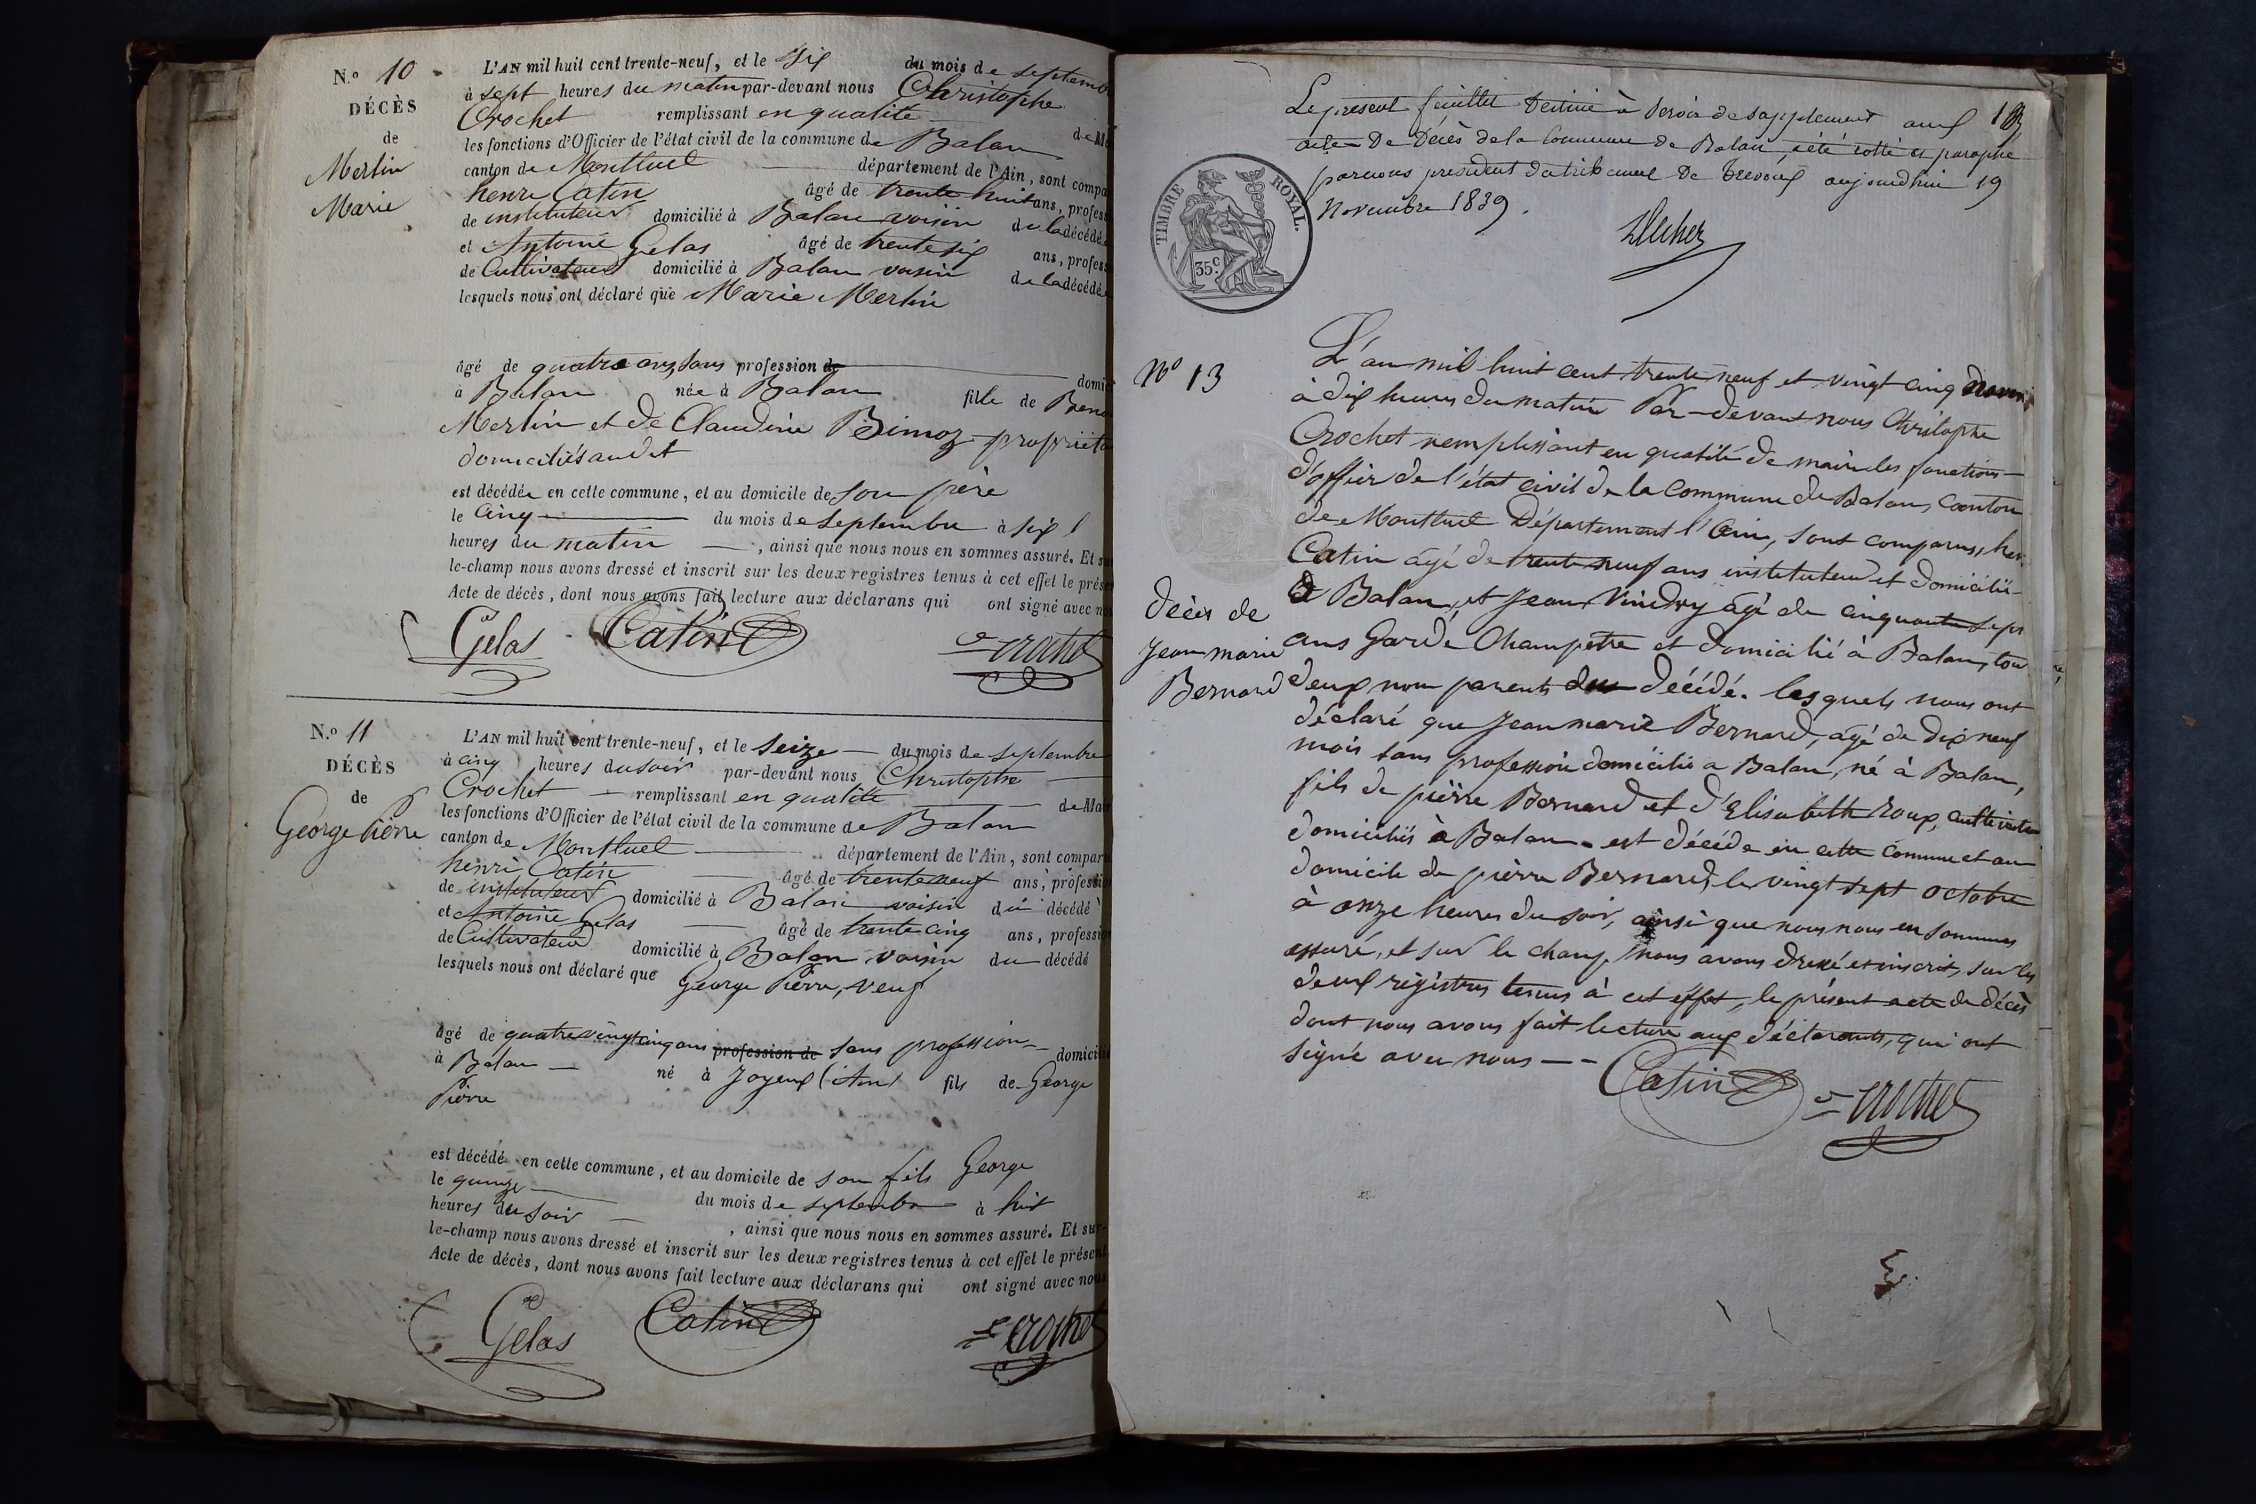 N.º 10
DÉCÈS
de
Merlin
Marie
L'AN mil huit cent trente-neuf, et le Six du mois de septemb
à sept heures du matin par-devant nous Christophe
Crochet remplissant en qualité de Ma
les fonctions d'Officier de l'état civil de la commune de Balan
canton de Montluel département de l'Ain, sont compa
henri Catin âgé de trente huit ans, profess
de instituteur domicilié à Balan voisin de la décédée
et Antoine Gelas âgé de trente six ans, profess
de Cultivateur domicilié à Balan voisin de la décédée
lesquels nous ont déclaré que Marie Merlin
âgé de quatre ans, sans profession de domi
à Balan née à Balan fille de Beno
Merlin et de Claudine Bimoz propriéta
domiciliés audit
est décédée en cette commune, et au domicile de son père
le cinq du mois de septembre à six
heures du matin, ainsi que nous nous en sommes assuré. Et su
le-champ nous avons dressé et inscrit sur les deux registres tenus à cet effet le prése
Acte de décès, dont nous avons fait lecture aux déclarans qui ont signé avec no
Gelas Catin Crochet
N.º 11
DÉCÈS
de
George Pierre
L'AN mil huit cent trente-neuf, et le seize du mois de septembre
à cinq heures du soir par-devant nous Christophe
Crochet remplissant en qualité de Mai
les fonctions d'Officier de l'état civil de la commune de Balan
canton de Montluel département de l'Ain, sont compar
henri Catin âgé de trente neuf ans, professio
de instituteur domicilié à Balan voisin du décédé
et Antoine Gelas âgé de trente cinq ans, professio
de Cultivateur domicilié à Balan voisin du décédé
lesquels nous ont déclaré que George Pierre, veuf
âgé de quatrevingt cinq ans profession de sans profession domicili
à Balan né à Joyeux (Ain) fils de George
Pierre
est décédé en cette commune, et au domicile de son fils George
le quinze du mois de septembre à huit
heures du soir, ainsi que nous nous en sommes assuré. Et sur-
le-champ nous avons dressé et inscrit sur les deux registres tenus à cet effet le présent
Acte de décès, dont nous avons fait lecture aux déclarans qui ont signé avec nous
Gelas Catin Crochet
Le présent feuillet destiné à servir de supplément aux
actes de Décès de la Commune de Balan, a été cotté et paraphé
par nous president du tribunal de Trevoux aujourdhui 19
Novembre 1839.
TIMBRE ROYAL.
35 c.
Nº 13
Décès de
Jean marie
Bernard
L'an mil huit cent trente neuf et vingt cinq novem
à dix heures du matin Par-devant nous Christophe
Crochet remplissant en qualité de maire les fonctions
d'officier de l'état civil de la Commune de Balan, Canton
de Montluel Département l'Ain, sont comparus, hen
Catin âgé de trente neuf ans instituteur et domicilié
à Balan, et Jean Vindry âgé de cinquante sept
ans Garde Champetre et domicilié à Balan, tou
deux non parents du décédé. lesquels nous ont
déclaré que Jean marie Bernard, âgé de dix neuf
mois sans profession domicilié a Balan, né à Balan,
fils de pierre Bernard et d'Elisabeth Roux, cultivateu
domiciliés à Balan est décédé en cette commune et au
domicile de pierre Bernard, le vingt sept octobre
à onze heures du soir, ainsi que nous nous en sommes
assuré, et sur le champ nous avons dressé et inscrit, sur les
deux registres tenus à cet effet, le présent acte de décès
dont nous avons fait lecture aux déclarants, qui ont
signé avec nous
Catin Crochet